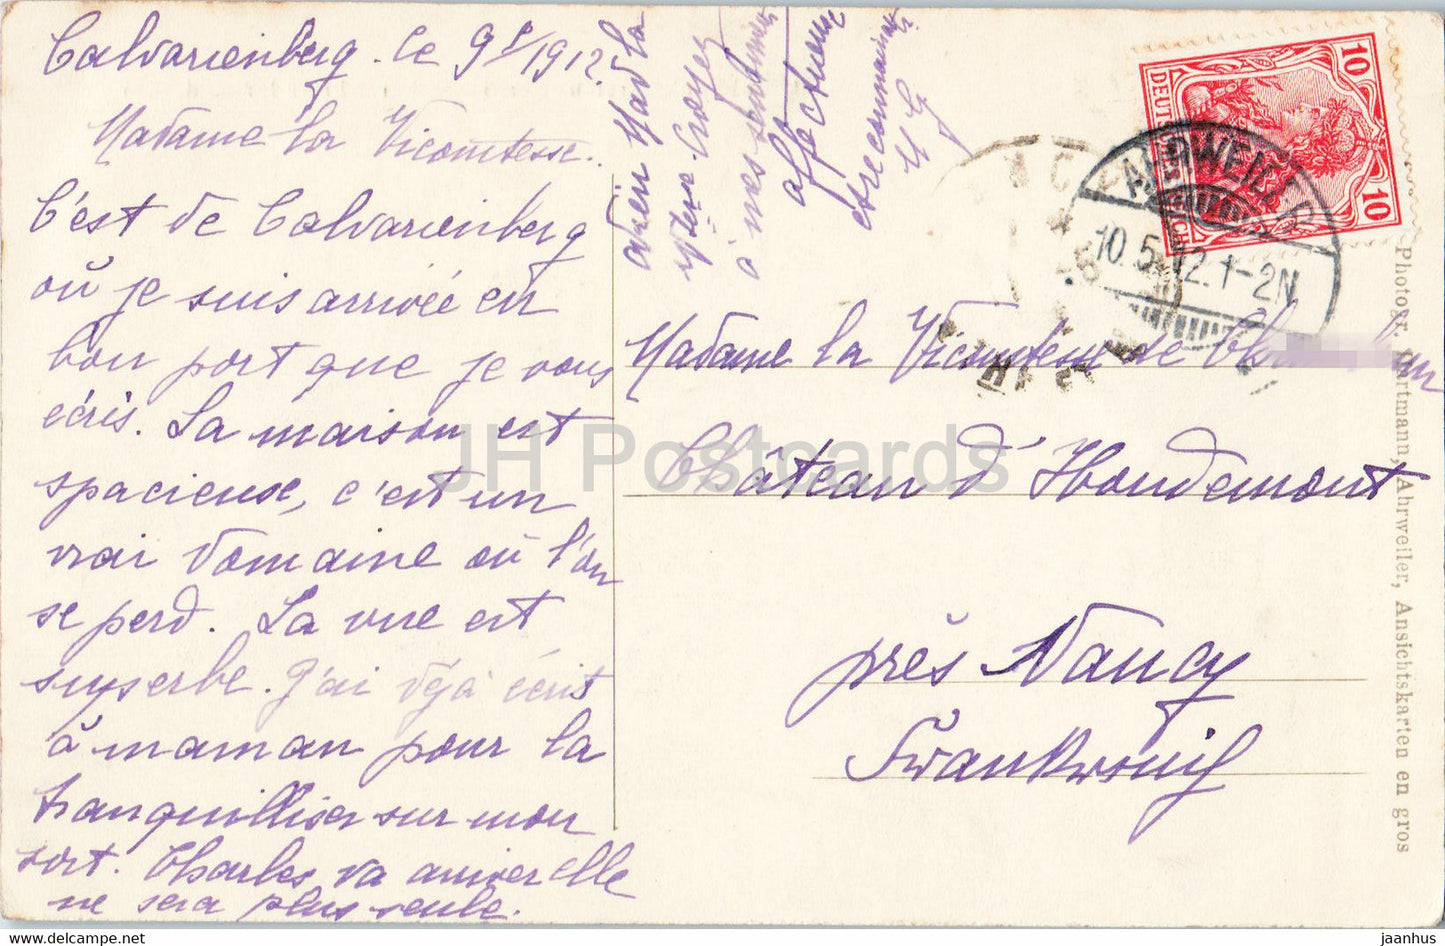 Calvarienberg. le 9 5/1912.
Madame la Vicomtesse.
C'est de Calvarienberg
où je suis arrivée en
bon port que je vous
écris. La maison est
spacieuse, c'est un
vrai domaine où l'on
se perd. La vue est
superbe. J'ai déjà écrit
à maman pour la
tranquilliser sur mon
sort. Charles va arriver elle
ne sera plus seule.
Mad la
Croyez
à mes sentiments
affectueux
et reconnaissants
M G
DEUTSCHES REICH
10
10
AHRWEILER
10.5.12.1-2N
Madame la Vicomtesse de
Château d'Houdemont
près Nancy
Frankreich
JH Postcards
Photogr. Hartmann, Ahrweiler, Ansichtskarten en gros
delcampe.net
jaanhus